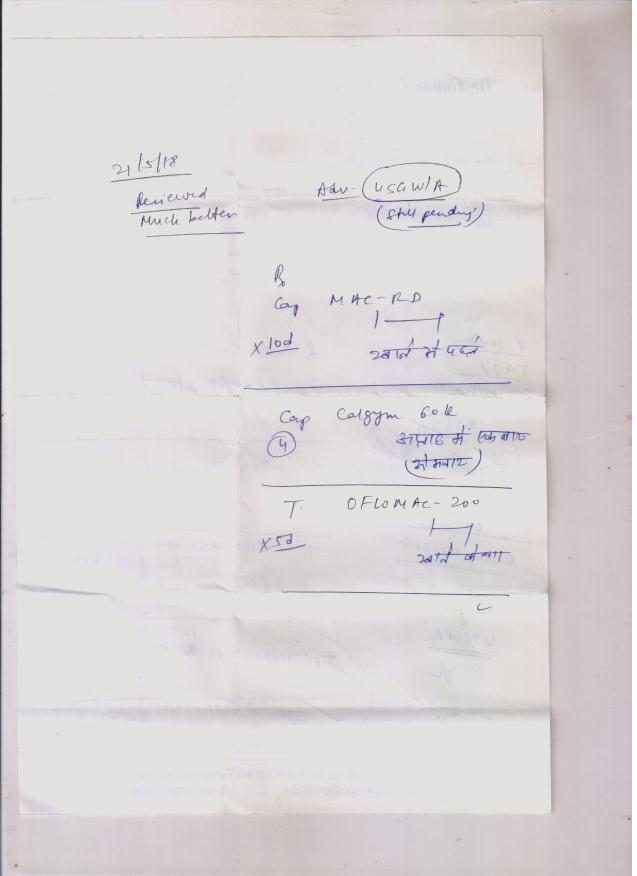 21/5/18
Reviewed
Much better
Adv- USG W/A
(Still pending)
Rx
Cap MAC-RD
x 10d
खाने से पहले
Cap Calgym 60k
4
सप्ताह में एक बार
(सोमवार)
T. OFLOMAC-200
x 5d
खाने के बाद